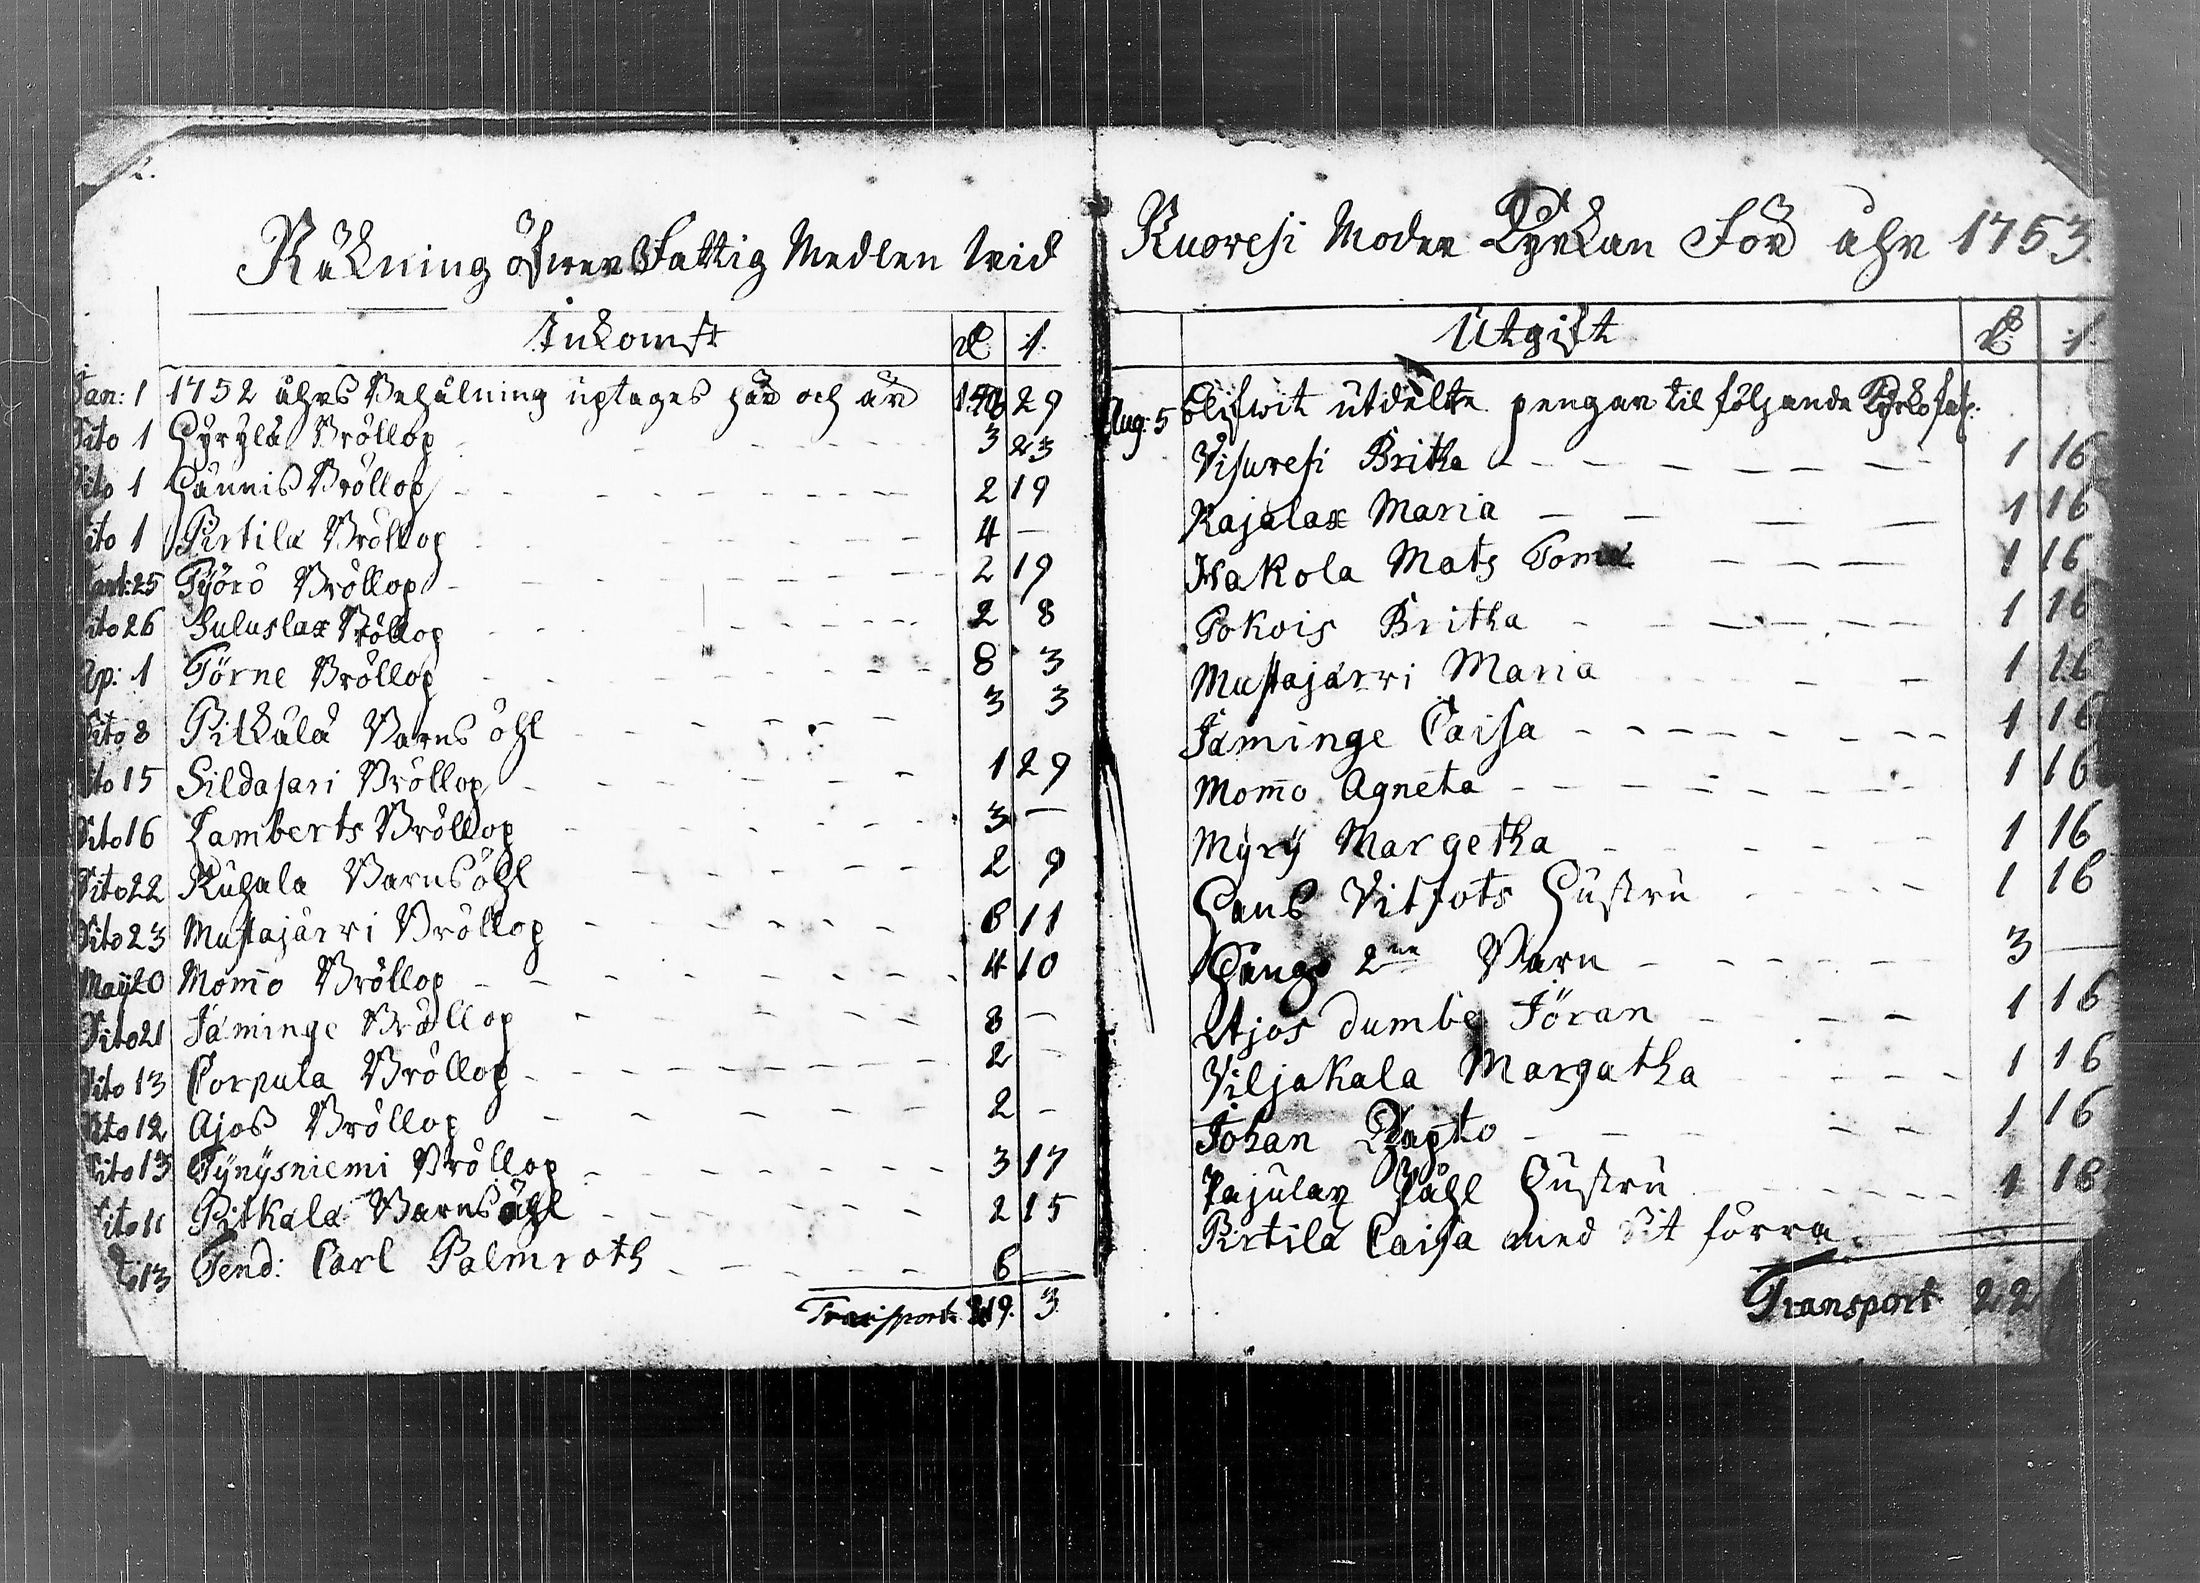 Räkning öfwer Fattig Medlen wid
Inkomst
Jan: 1 1752 åhrs Behålning uptages här och är 29
Dito 1 Hyrylä Bröllop 3 23
Dito 1 Hännis Bröllop 2 19
Dito 1 Pirtilä Bröllop 4 —
25 Pyörö Bröllop 2 19
Dito 26 Suluslax Bröllop 2 8
Ap: 1 Törne Bröllop 8 3
Dito 8 Pitkälä Barns öhl 3 3
Dito 15 Sildasari Bröllop 1 29
Dito 16 Lamberts Bröllop 3 —
Dito 22 Kuhala Barns öhl 2 9
Dito 23 Mustajärwi Bröllop 6 11
Maij 20 Mom̅o Bröllop 4 10
Dito 21 Jäminge Bröllop 8 —
Dito 13 Corpula Bröllop 2 -
Dito 12 Ajos Bröllop 2 -
Dito 13 Tynysniemi Bröllop 3 17
Dito 11 Pitkälä Barns öhl 2 15
13 Fend: Carl Palmroth 6 —
Transport 219. 3
Kuoresi Moder Kyrkan För åhr 1753
Utgift
Aug: 5 Blifwit utdelte pengar til följande
Visuresi Britha 1 16
Kajalax Maria 1 16
Hakola Mats 1 16
Pokois Britha 1 16
Mustajärwi Maria 1 16
Jäminge Caisa 1 16
Mom̅o Agneta 1 16
Myry Margetha 1 16
Hans Vitfots Hustru 1 16
2ne Barn 3 —
Ajos dumbe Jöran 1 16
Viljakala Margatha 1 16
Johan 1 16
Påhl Hustru 1 16
Pirtilä Caisa med Sit förra
Transport 22